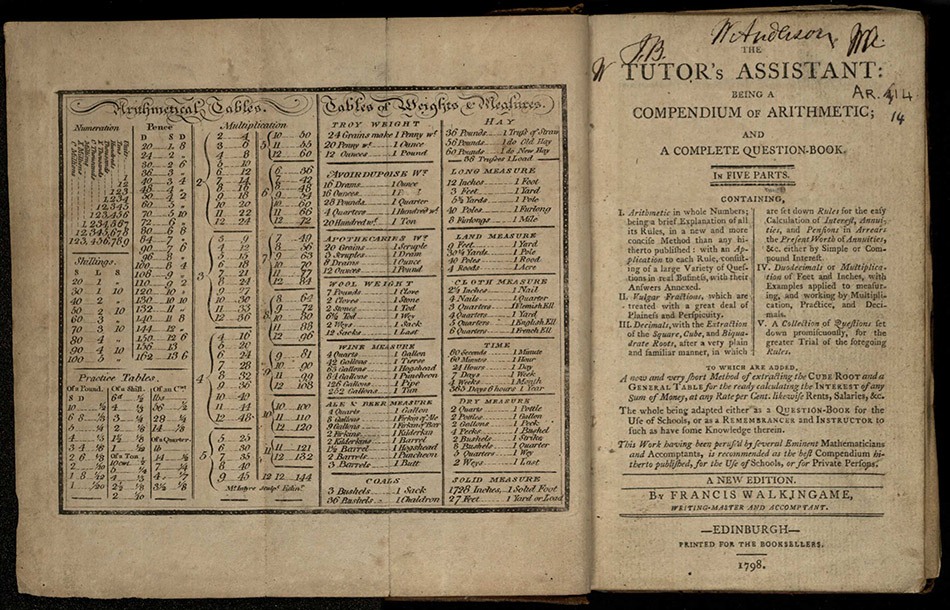 Arithmetical Tables.
Numeration
Units
Tens
Hundreds
Thousands
X Thousands
C Thousands
Millions
X Millions
C Millions
1
12
123
1234
12345
123456
1,234,567
12,345,678
123,456,789
Shillings.
S L S
20 1 "
30 1 10
40 2 "
50 2 10
60 3 "
70 3 10
80 4 "
90 4 10
100 5 "
Pence
D S D
20 1 8
24 2 "
30 2 6
36 3 "
40 3 4
48 4 "
50 4 2
60 5 "
70 5 10
72 6 "
80 6 8
84 7 "
90 7 6
96 8 "
100 8 4
108 9 "
110 9 2
120 10 "
130 10 10
132 11 "
140 11 8
144 12 "
150 12 6
156 13 "
162 13 6
Practice Tables.
Of a Pound.
S D
10 ,, ½
6 8 ⅓
5 ,, ¼
4 ,, ⅕
3 4 ⅙
2 6 ⅛
2 ,, 1/10
1 8 1/12
1 ,, 1/20
Of a Shill.
6d ½
4 ⅓
3 ¼
2 ⅙
1½ ⅛
Of a Ton
10 cwt ½
5 ¼
4 ⅕
2½ ⅛
2 1/10
Of an Cwt
lbs
56 ½
28 ¼
14 ⅛
Of a Quarter
14 ½
7 ¼
4 1/7
3½ ⅛
Multiplication
2
2 4
3 6
4 8
5 10
6 12
7 14
8 16
9 18
10 20
11 22
12 24
3
3 9
4 12
5 15
6 18
7 21
8 24
9 27
10 30
11 33
12 36
4
4 16
5 20
6 24
7 28
8 32
9 36
10 40
11 44
12 48
5
5 25
6 30
7 35
8 40
9 45
5
10 50
11 55
12 60
6
6 36
7 42
8 48
9 54
10 60
11 66
12 72
7
7 49
8 56
9 63
10 70
11 77
12 84
8
8 64
9 72
10 80
11 88
12 96
9
9 81
10 90
11 99
12 108
10
10 100
11 110
12 120
11
11 121
12 132
12 12 144
McIntyre Sculpt Edinr.
Tables of Weights & Meaſures.
TROY WEIGHT
24 Grains make 1 Penny wt.
20 Penny wt. 1 Ounce
12 Ounces 1 Pound
AVOIRDUPOISE WT
16 Drams 1 Ounce
16 Ounces 1
28 Pounds 1 Quarter
4 Quarters 1 Hundred wt.
20 Hundred wt. 1 Ton
APOTHECARIES WT
20 Grains 1 Scruple
3 Scruples 1 Dram
8 Drams 1 Ounce
12 Ounces 1 Pound
WOOL WEIGHT
7 Pounds 1 Clove
2 Cloves 1 Stone
2 Stones 1 Tod
6½ Tod 1 Wey
2 Weys 1 Sack
12 Sacks 1 Last
WINE MEASURE
4 Quarts 1 Gallon
42 Gallons 1 Tierce
63 Gallons 1 Hogshead
84 Gallons 1 Puncheon
126 Gallons 1 Pipe
252 Gallons 1 Tun
ALE & BEER MEASURE
4 Quarts 1 Gallon
8 Gallons 1 Firkin of Ale
9 Gallons 1 Firkin of Bar
2 Firkins 1 Kilderkin
2 Kilderkins 1 Barrel
1½ Barrel 1 Hogshead
2 Barrels 1 Puncheon
3 Barrels 1 Butt
COALS
3 Bushels 1 Sack
36 Bushels 1 Chaldron
HAY
36 Pounds 1 Truſs of Straw
56 Pounds 1 do Old Hay
60 Pounds 1 do New Hay
36 Truſses 1 Load
LONG MEASURE
12 Inches 1 Foot
3 Feet 1 Yard
5½ Yards 1 Pole
40 Poles 1 Furlong
8 Furlongs 1 Mile
LAND MEASURE
9 Feet 1 Yard
30¼ Yards 1 Pole
40 Poles 1 Rood
4 Roods 1 Acre
CLOTH MEASURE
2¼ Inches 1 Nail
4 Nails 1 Quarter
3 Quarters 1 Flemish Ell
4 Quarters 1 Yard
5 Quarters 1 English Ell
6 Quarters 1 French Ell
TIME
60 Seconds 1 Minute
60 Minutes 1 Hour
24 Hours 1 Day
7 Days 1 Week
4 Weeks 1 Month
365 Days 6 hours 1 Year
DRY MEASURE
2 Quarts 1 Pottle
2 Pottles 1 Gallon
2 Gallons 1 Peck
4 Pecks 1 Bushel
2 Bushels 1 Strike
8 Bushels 1 Quarter
5 Quarters 1 Wey
2 Weys 1 Last
SOLID MEASURE
1728 Inches 1 Solid Foot
27 Feet 1 Yard or Load
W Anderson
J.B.
W
THE
TUTOR's ASSISTANT:
BEING A
AR.
14
14
COMPENDIUM OF ARITHMETIC;
AND
A COMPLETE QUESTION-BOOK.
IN FIVE PARTS.
CONTAINING,
I. Arithmetic in whole Numbers;
being a brief Explanation of all
its Rules, in a new and more
conciſe Method than any hi-
therto publiſhed; with an Ap-
plication to each Rule, conſiſt-
ing of a large Variety of Queſ-
tions in real Buſineſs, with their
Anſwers Annexed.
II. Vulgar Fractions, which are
treated with a great deal of
Plaineſs and Perſpicuity.
III. Decimals, with the Extraction
of the Square, Cube, and Biqua-
drate Roots, after a very plain
and familiar manner, in which
are ſet down Rules for the eaſy
Calculation of Intereſt, Annui-
ties, and Penſions in Arrears
the Preſent Worth of Annuities,
&c. either by Simple or Com-
pound Intereſt.
IV. Duodecimals or Multiplica-
tion of Foot and Inches, with
Examples applied to meaſur-
ing, and working by Multipli-
cation, Practice, and Deci-
mals.
V. A Collection of Queſtions ſet
down promiſcuouſly, for the
greater Trial of the foregoing
Rules.
TO WHICH ARE ADDED,
A new and very ſhort Method of extracting the CUBE ROOT and a
GENERAL TABLE for the ready calculating the INTEREST of any
Sum of Money, at any Rate per Cent. likewiſe Rents, Salaries, &c.
The whole being adapted either as a QUESTION-BOOK for the
Uſe of Schools, or as a REMEMBRANCER and INSTRUCTOR to
ſuch as have ſome Knowledge therein.
This Work having been peruſ'd by ſeveral Eminent Mathematicians
and Accomptants, is recommended as the beſt Compendium hi-
therto publiſhed, for the Uſe of Schools, or for Private Perſons.
A NEW EDITION.
BY FRANCIS WALKINGAME,
WRITING-MASTER AND ACCOMPTANT.
—EDINBURGH—
PRINTED FOR THE BOOKSELLERS.
1798.